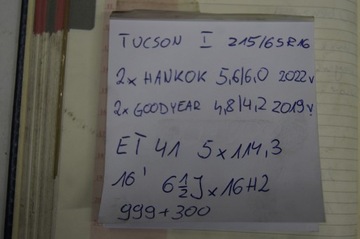 TUCSON I 215/65R16
2x HANKOK 5,6/6,0 2022v
2x GOODYEAR 4,8/4,2 2019v
ET 41 5x114,3
16' 6 1/2 J x 16H2
999+300